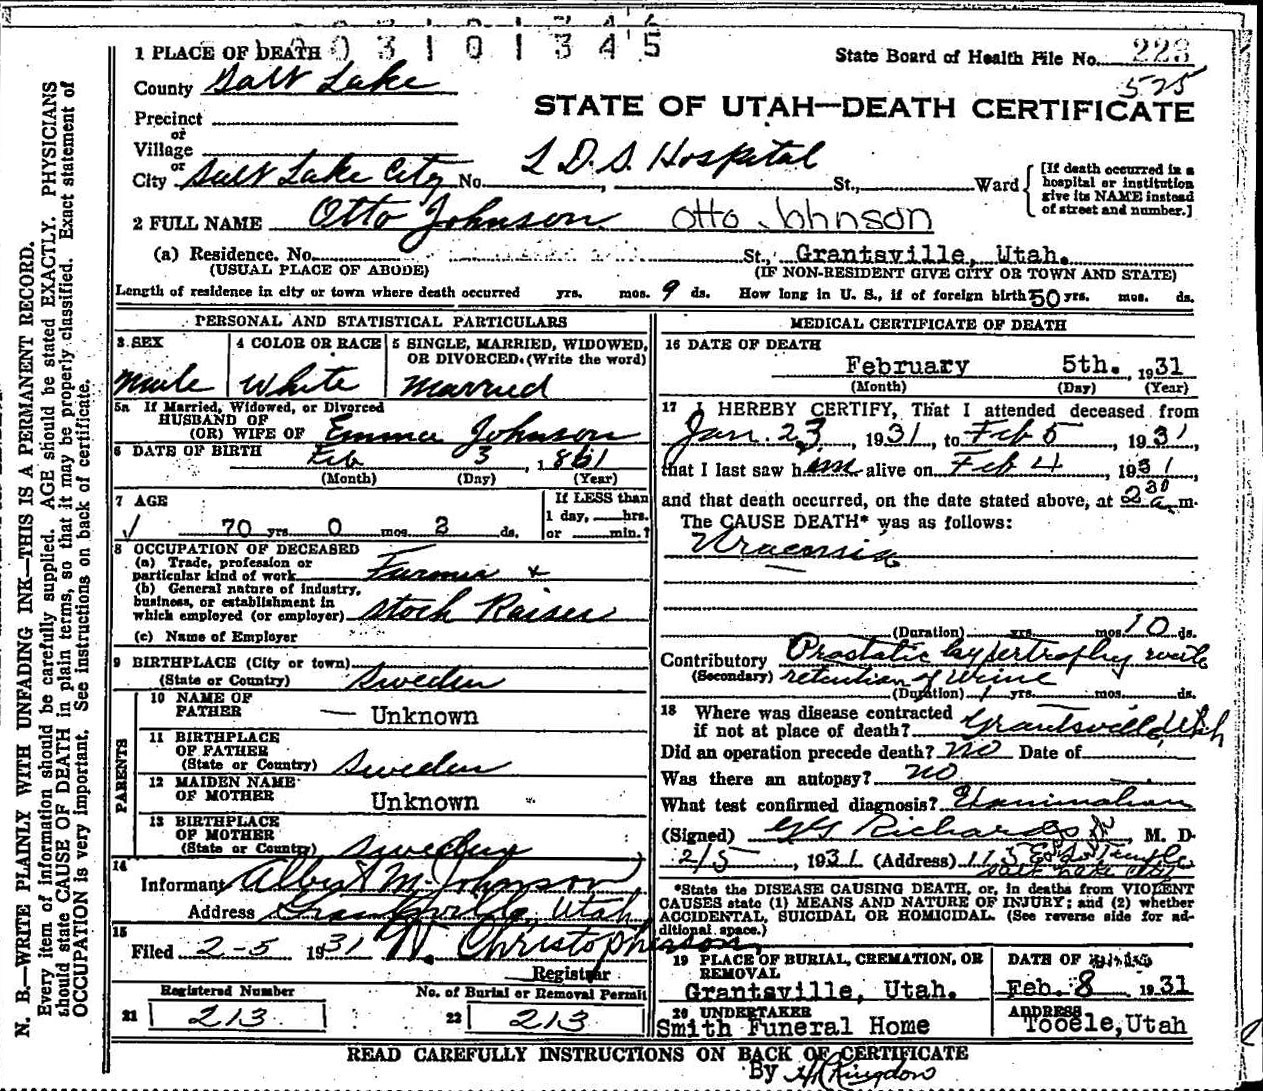 0 0 3 1 0 1 3 4 5
1 PLACE OF DEATH
State Board of Health File No. 223
525
County Salt Lake
STATE OF UTAH—DEATH CERTIFICATE
Precinct
or
Village
or
City Salt Lake City No. L D. S. Hospital St., Ward
[If death occurred in a hospital or institution give its NAME instead of street and number.]
2 FULL NAME Otto Johnson Otto Johnson
(a) Residence. No. St., Grantsville, Utah.
(USUAL PLACE OF ABODE) (IF NON-RESIDENT GIVE CITY OR TOWN AND STATE)
Length of residence in city or town where death occurred yrs. mos. 9 ds. How long in U. S., if of foreign birth 50 yrs. mos. ds.
PERSONAL AND STATISTICAL PARTICULARS
3 SEX
Male
4 COLOR OR RACE
White
5 SINGLE, MARRIED, WIDOWED, OR DIVORCED. (Write the word)
Married
5a If Married, Widowed, or Divorced
HUSBAND OF
(OR) WIFE OF Emma Johnson
6 DATE OF BIRTH
Feb 3, 1861
(Month) (Day) (Year)
7 AGE
70 yrs. 0 mos. 2 ds.
If LESS than
1 day, hrs.
or min.?
8 OCCUPATION OF DECEASED
(a) Trade, profession or
particular kind of work Farmer +
(b) General nature of industry,
business, or establishment in
which employed (or employer) Stock Raiser
(c) Name of Employer
9 BIRTHPLACE (City or town)
(State or Country) Sweden
PARENTS
10 NAME OF
FATHER — Unknown
11 BIRTHPLACE
OF FATHER
(State or Country) Sweden
12 MAIDEN NAME
OF MOTHER Unknown
13 BIRTHPLACE
OF MOTHER
(State or Country) Sweden
14
Informant Albert M. Johnson
Address Grantsville, Utah
15
Filed 2-5 1931 W. Christopherson,
Registrar
Registered Number
21 213
No. of Burial or Removal Permit
22 213
MEDICAL CERTIFICATE OF DEATH
16 DATE OF DEATH
February 5th. 1931
(Month) (Day) (Year)
17 I HEREBY CERTIFY, That I attended deceased from
Jan. 23, 1931, to Feb 5, 1931,
that I last saw him alive on Feb 4, 1931
and that death occurred, on the date stated above, at 2 30 a m.
The CAUSE DEATH* was as follows:
Uraemia
(Duration) yrs. mos. 10 ds.
Contributory Prostatic hypertrophy with
(Secondary) retention of urine
(Duration) 1 yrs. mos. ds.
18 Where was disease contracted
if not at place of death? Grantsville, Utah
Did an operation precede death? No Date of
Was there an autopsy? no
What test confirmed diagnosis?
(Signed) GG Richards M. D.
2/5, 1931 (Address) 115 E So Temple
Salt Lake City
*State the DISEASE CAUSING DEATH, or, in deaths from VIOLENT
CAUSES state (1) MEANS AND NATURE OF INJURY; and (2) whether
ACCIDENTAL, SUICIDAL OR HOMICIDAL. (See reverse side for ad-
ditional space.)
19 PLACE OF BURIAL, CREMATION, OR
REMOVAL
Grantsville, Utah.
DATE OF
Feb. 8 1931
20 UNDERTAKER
Smith Funeral Home
ADDRESS
Tooele, Utah
READ CAREFULLY INSTRUCTIONS ON BACK OF CERTIFICATE
By
N. B.—WRITE PLAINLY WITH UNFADING INK—THIS IS A PERMANENT RECORD.
Every item of information should be carefully supplied. AGE should be stated EXACTLY. PHYSICIANS
should state CAUSE OF DEATH in plain terms, so that it may be properly classified. Exact statement of
OCCUPATION is very important. See instructions on back of certificate.